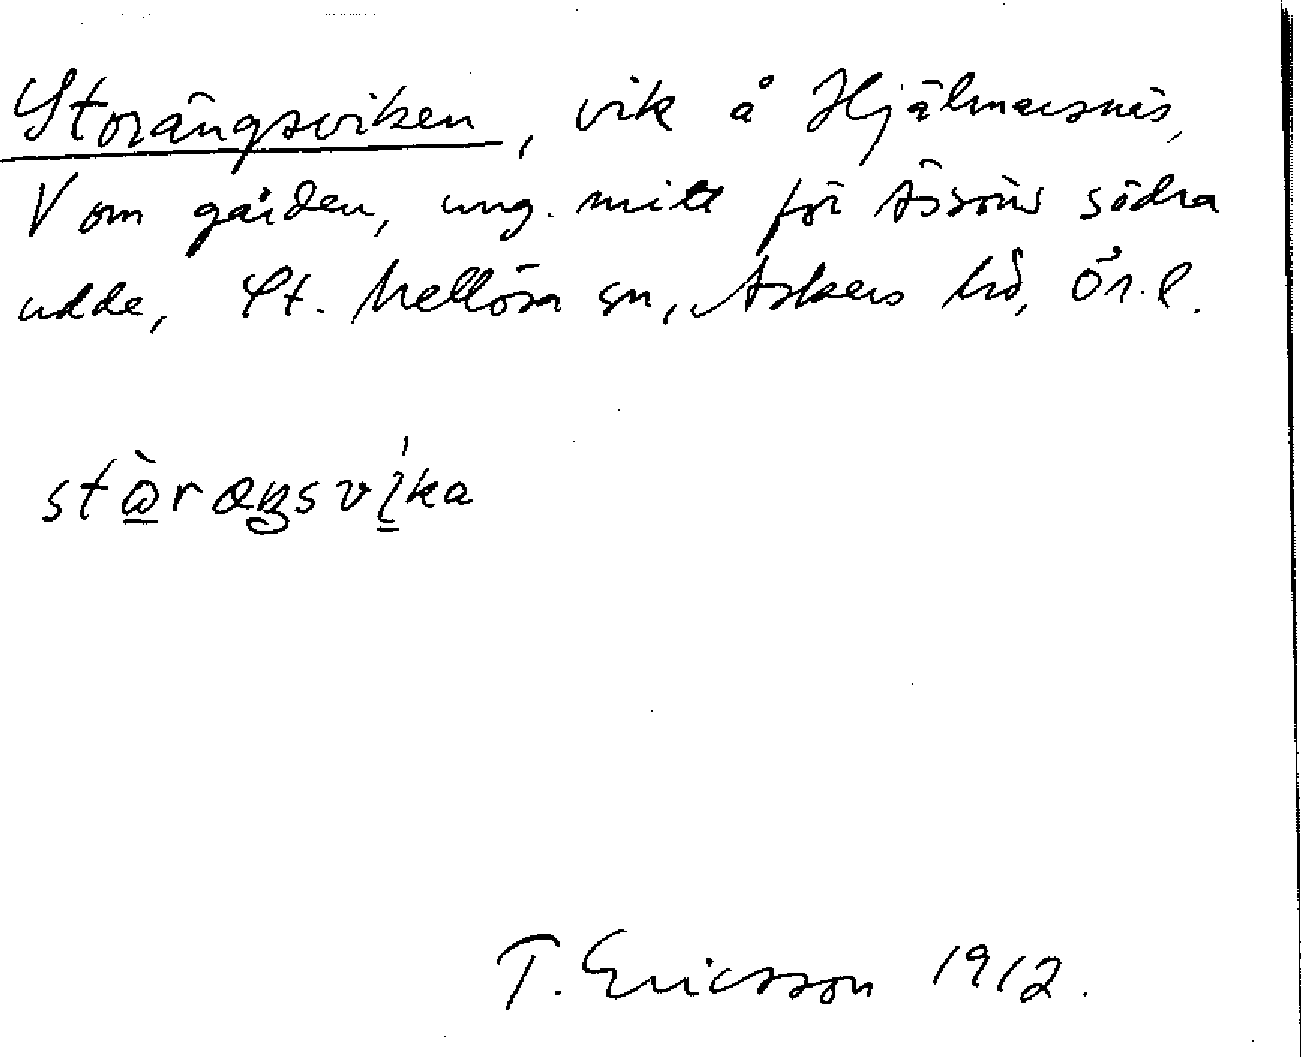 Storängsviken, vik å Hjälmarsnäs,
V om gården, ung. mitt för Åsöns södra
udde, St. Mellösa sn, Askers hd, Ör. l.
stὼ̱raŋsvi̱̍ka
T. Ericsson 1912.